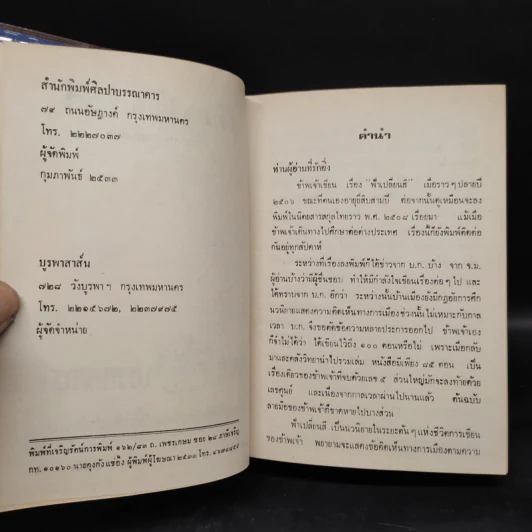 สำนักพิมพ์ศิลปาบรรณาคาร
๗๔ ถนนอัษฎางค์ กรุงเทพมหานคร
โทร. ๒๒๒๗๐๓๗
ผู้จัดพิมพ์
กุมภาพันธ์ ๒๕๓๓
บูรพาสาส์น
๗๒๘ วังบูรพา ฯ กรุงเทพมหานคร
โทร. ๒๒๑๕๖๗๒, ๒๒๓๗๙๗๕
ผู้จัดจำหน่าย
พิมพ์ที่เจริญรัตน์การพิมพ์ ๑๖๒/๘๓ ถ. เพชรเกษม ซอย ๒๘ ภาษีเจริญ
กท. ๑๐๑๖๐ ผู้พิมพ์ผู้โฆษณา ๒๕๓๓ โทร.
คำนำ
ท่านผู้อ่านที่รักยิ่ง
ข้าพเจ้าเขียน เรื่อง "ฟ้าเปลี่ยนสี" เมื่อราว ๆ ปลายปี
๒๕๐๖ ขณะที่ตนเองอายุยี่สิบสามปี ต่อจากนั้นดูเหมือนจะลง
พิมพ์ในนิตยสารสกุลไทยราว พ.ศ. ๒๕๐๘ เรื่อยมา แม้เมื่อ
ข้าพเจ้าเดินทางไปศึกษาต่อต่างประเทศ เรื่องนี้ก็ยังพิมพ์ติดต่อ
กันอยู่ทุกสัปดาห์
ระหว่างที่เรื่องลงพิมพ์ก็ได้ข่าวจาก บ.ก. บ้าง จาก จ.ม.
ผู้อ่านบ้างว่ามีผู้ชื่นชอบ ทำให้มีกำลังใจเขียนเรื่องต่อ ๆ ไป และ
ได้ทราบจาก บ.ก. อีกว่า ระหว่างนั้นบ้านเมืองยังมีกฎอัยการศึก
นวนิยายแสดงความคิดเห็นทางการเมืองช่วงนั้น ไม่เหมาะกับกาล
เวลา บ.ก. จึงขอตัดข้อความหลายประการออกไป ข้าพเจ้าเอง
ก็จำไม่ได้ว่า ได้เขียนไว้ถึง ๑๐๐ ตอนหรือไม่ เพราะเมื่อกลับ
มาและคลังวิทยานำไปรวมเล่ม หนังสือมีเพียง ๘๕ ตอน เป็น
เรื่องเดียวของข้าพเจ้าที่จบด้วยเลข ๕ ส่วนใหญ่มักจะลงท้ายด้วย
เลขศูนย์ และเนื่องจากกาลเวลาผ่านไปนานแล้ว ต้นฉบับ
ลายมือของข้าพเจ้าก็ขาดหายไปบางส่วน
ฟ้าเปลี่ยนสี เป็นนวนิยายในระยะต้น ๆ แห่งชีวิตการเขียน
ของข้าพเจ้า พยายามจะแสดงข้อคิดเห็นทางการเมืองตามความ